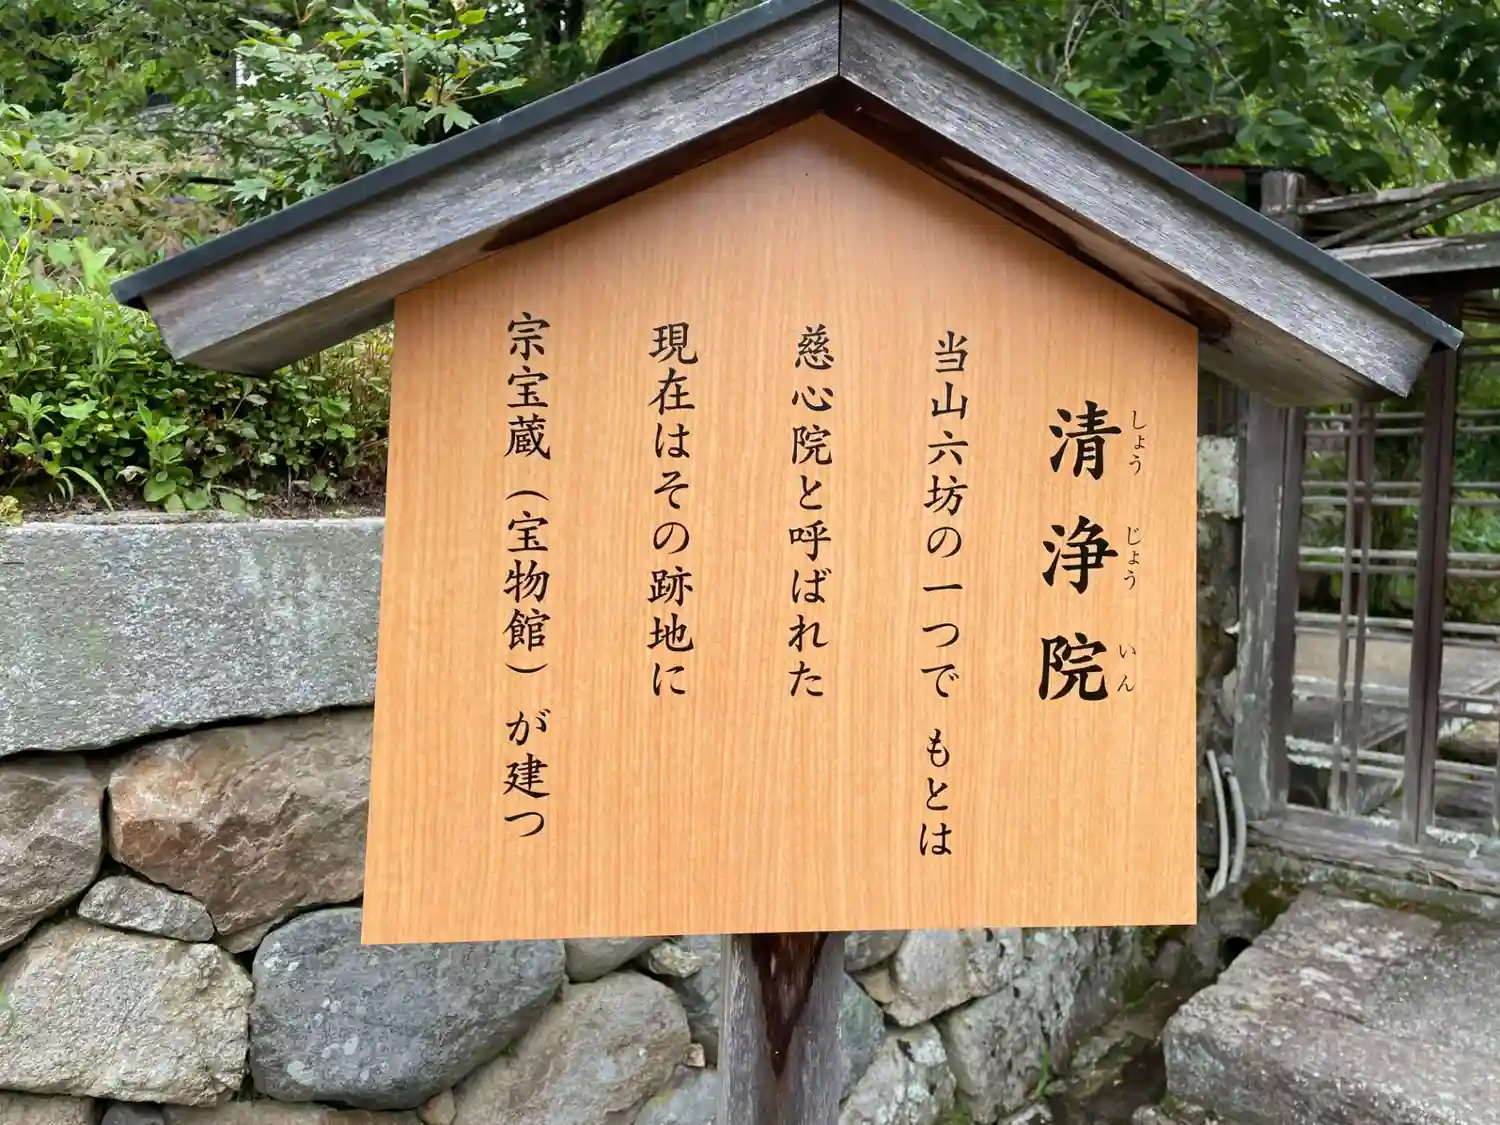 清浄院
しょうじょういん
当山六坊の一つで もとは
慈心院と呼ばれた
現在はその跡地に
宗宝蔵（宝物館）が建つ